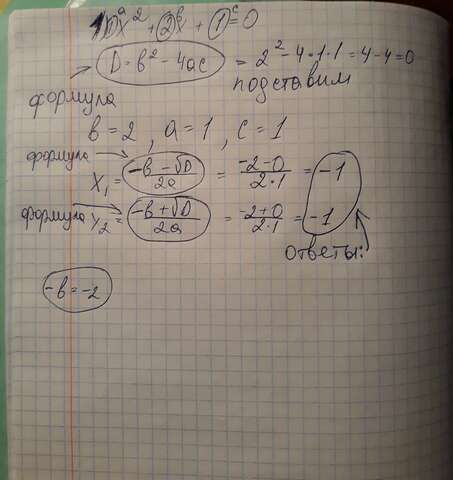 1x² + 2x + 1 = 0
a в c
D = в² - 4ac = 2² - 4·1·1 = 4 - 4 = 0
формула подставим
в = 2, a = 1, c = 1
формула
x₁ = (-в - √D)/2a = (-2-0)/(2·1) = -1
формула x₂ = (-в + √D)/2a = (-2+0)/(2·1) = -1
ответы:
-в = -2